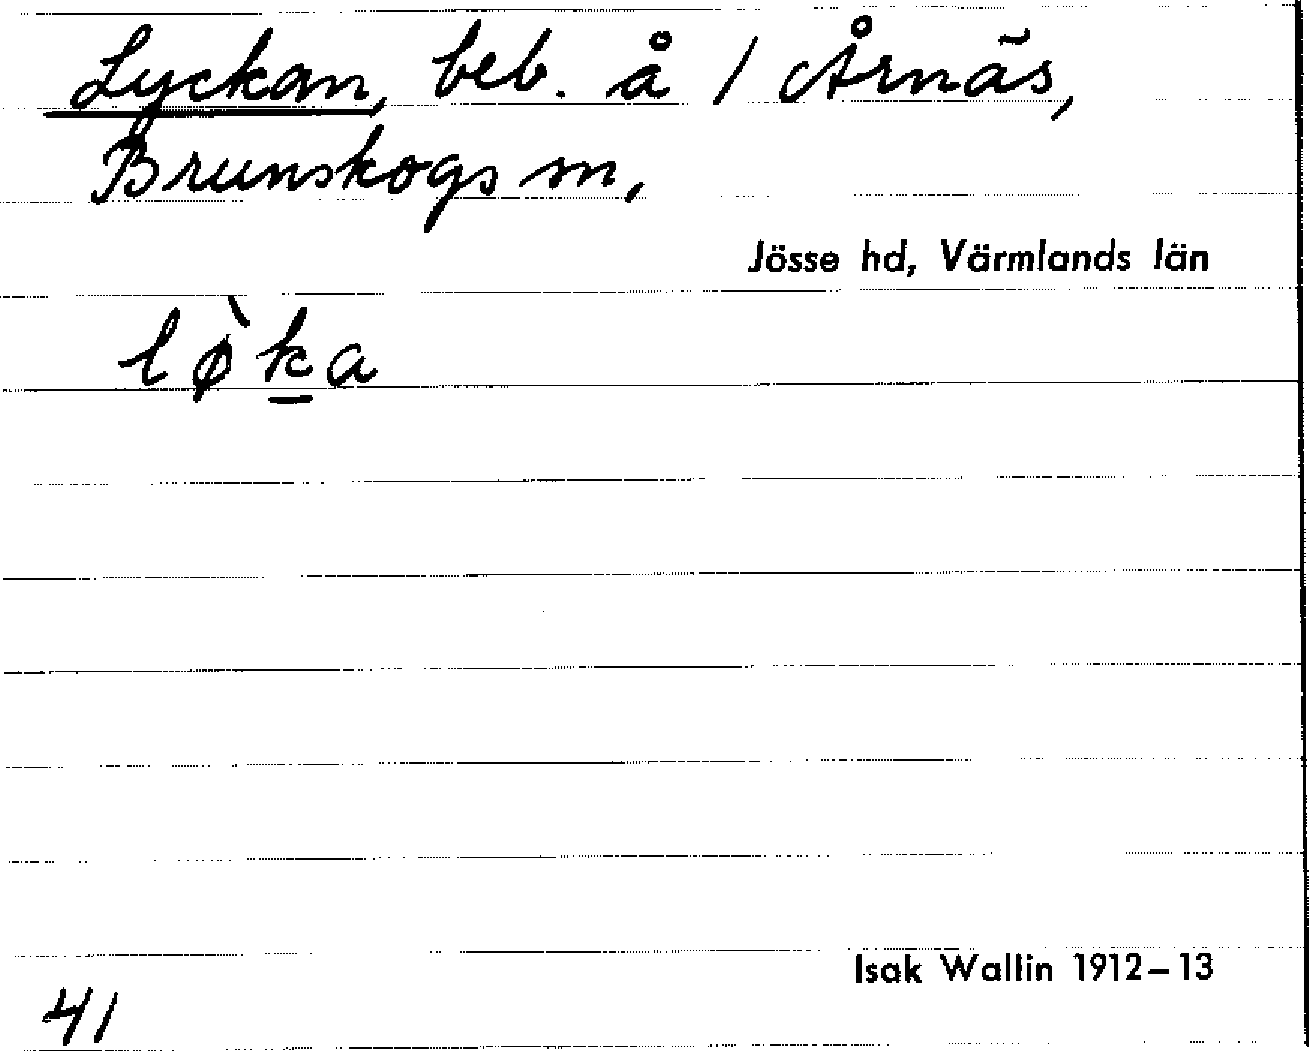 Lyckan, beb. å / Årnäs,
Brunskogs sn,
Jösse hd, Värmlands län
lø̀k̲a
Isak Wallin 1912–13
41